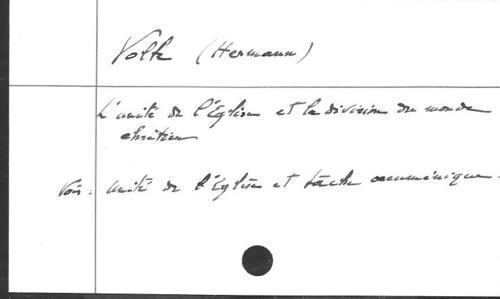 Volk (Hermann)
L'unité de l'Église et la division du monde
chrétien
Voir : Unité de l'Église et tâche œcuménique.